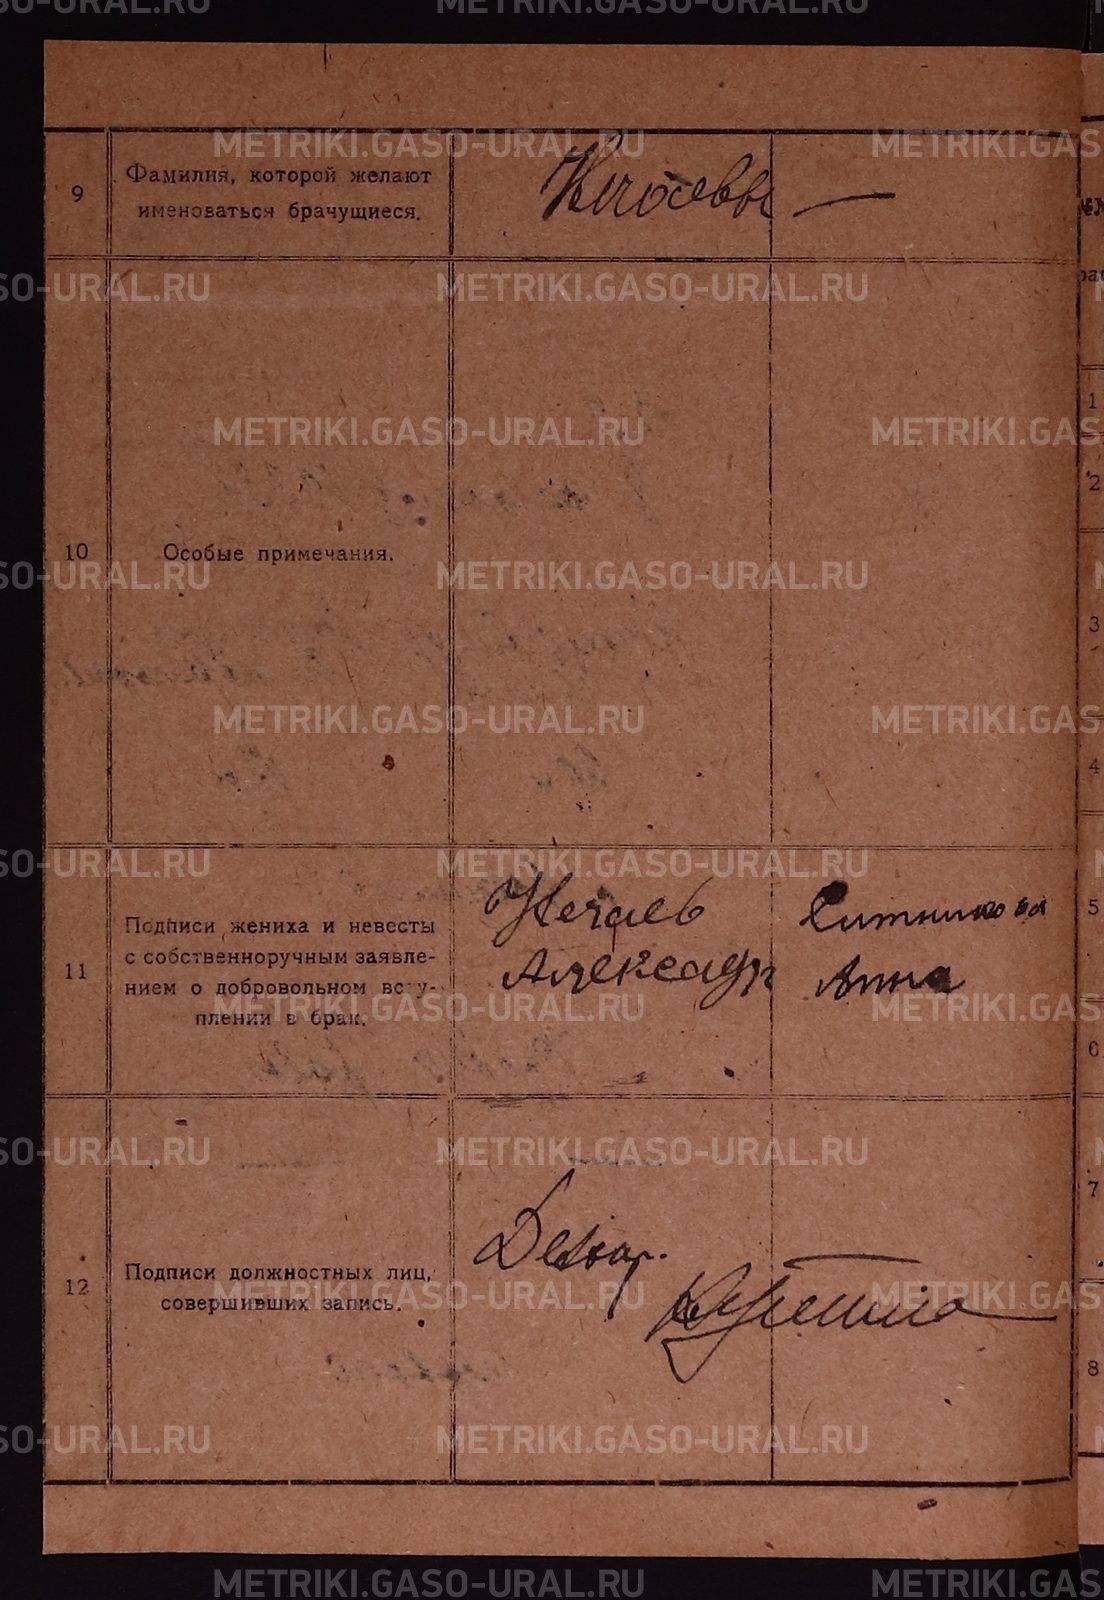 METRIKI.GASO-URAL.RU
9
Фамилия, которой желают
именоваться брачущиеся.
—
10
Особые примечания.
11
Подписи жениха и невесты
с собственноручным заявле-
нием о добровольном всту-
плении в брак.
Нечаев
Александр
Ситникова
Анна
12
Подписи должностных лиц,
совершивших запись.
1
2
3
4
5
6
7
8